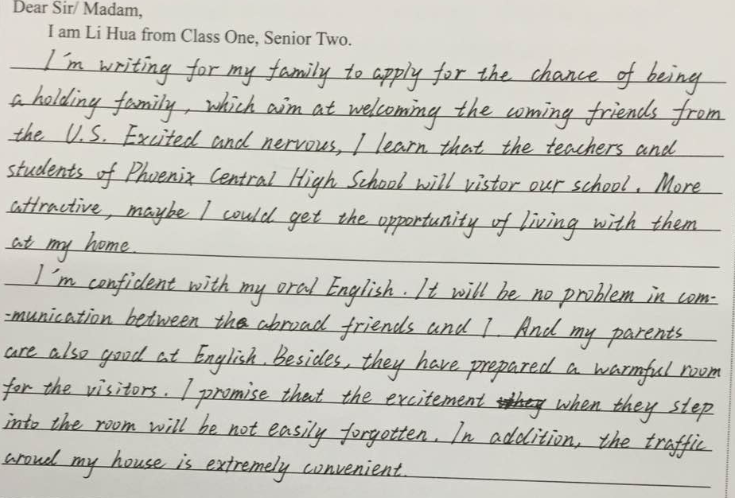 Dear Sir/ Madam,
I am Li Hua from Class One, Senior Two.
I'm writing for my family to apply for the chance of being
a holding family, which aim at welcoming the coming friends from
the U.S. Excited and nervous, I learn that the teachers and
students of Phoenix Central High School will vistor our school. More
attractive, maybe I could get the opportunity of living with them
at my home.
I'm confident with my oral English. It will be no problem in com-
-munication between the abroad friends and I. And my parents
are also good at English. Besides, they have prepared a warmful room
for the visitors. I promise that the excitement they when they step
into the room will be not easily forgotten. In addition, the traffic
aroud my house is extremely convenient.